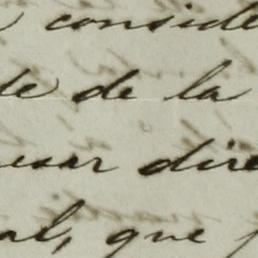 conside
te de la
esar dire
al, que